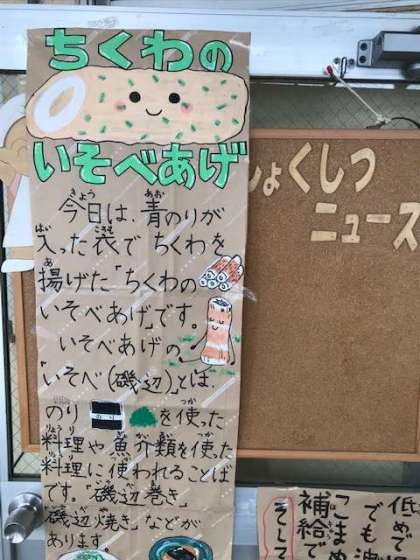 ちくわの
いそべあげ
今日は、青のりが
入った衣で ちくわを
揚げた「ちくわの
いそべあげ」です。
いそべあげの
「いそべ(磯辺)」とは、
のり を使った
料理や魚介類を使った
料理に使われることば
です。「磯辺巻き」
「磯辺焼き」などが
あります。
しょくしつ
ニュース
低め
でも
こま
補給で
そして